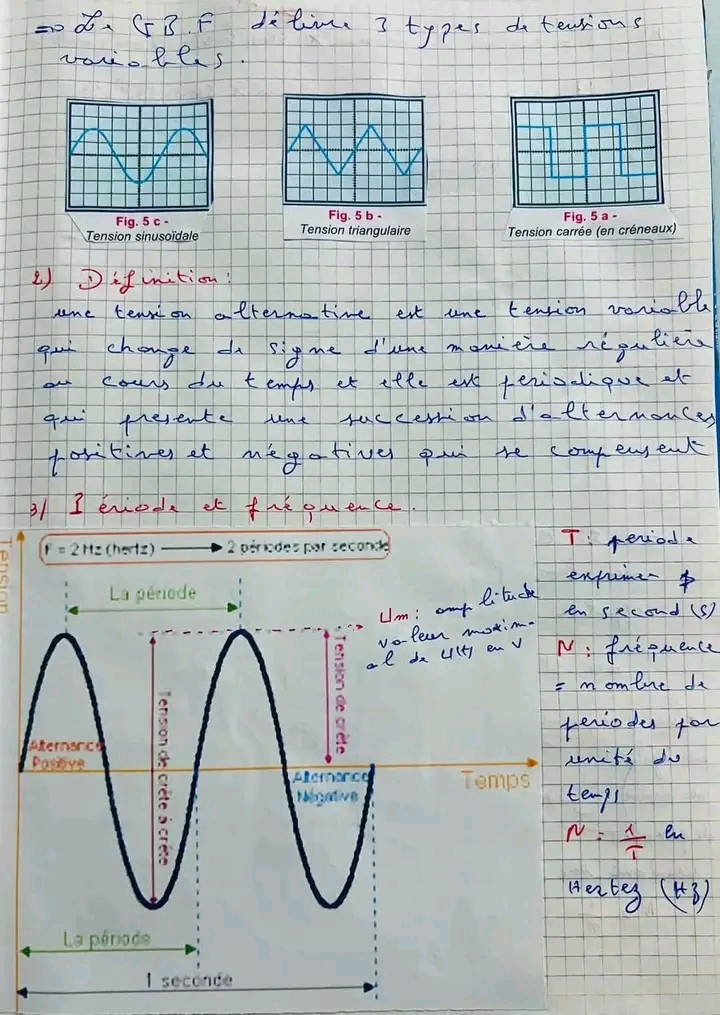 ⇒ Le G.B.F délivre 3 types de tensions
variables.
Fig. 5 c -
Tension sinusoïdale
Fig. 5 b -
Tension triangulaire
Fig. 5 a -
Tension carrée (en créneaux)
2) Définition:
une tension alternative est une tension variable
qui change de signe d'une manière régulière
au cours du temps et elle est periodique et
qui presente une succession d'alternances
positives et négatives qui se compensent
3/ Période et fréquence.
Tension
F = 2 Hz (hertz) → 2 périodes par seconde
La période
Um: amplitude
valeur maxim-
al de U(t) en V
Tension de crête à crête
Tension de crête
Alternance
Positive
Alternance
Négative
Temps
La période
1 seconde
T: periode
exprimer
en second (s)
N: fréquence
= nombre de
periodes par
unité de
temps
N = 1/T en
Hertez (Hz)